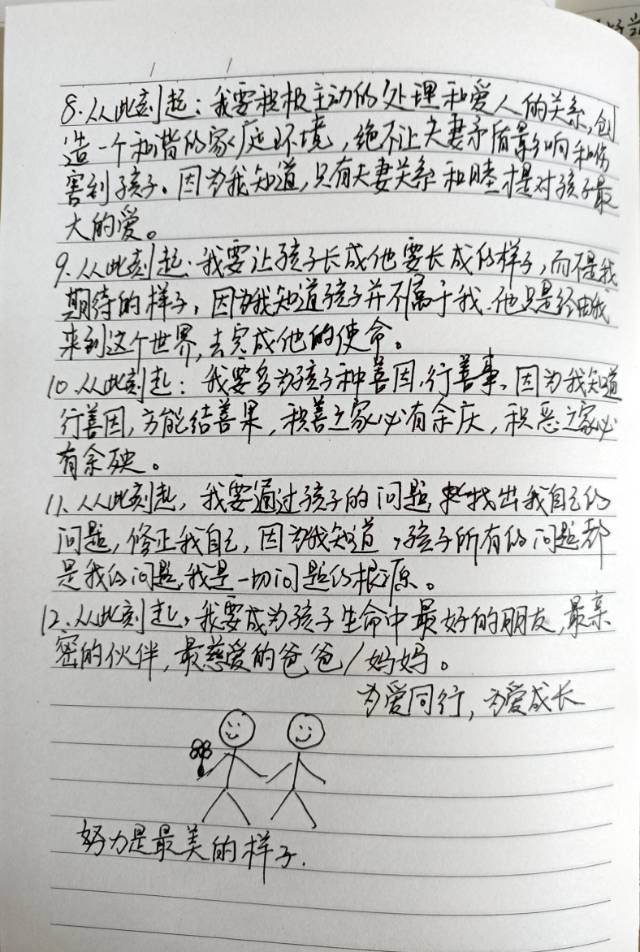 8.从此刻起：我要积极主动的处理和爱人的关系，创
造一个和谐的家庭环境，绝不让夫妻矛盾影响和伤
害到孩子。因为我知道，只有夫妻关系和睦才是对孩子最
大的爱。
9.从此刻起：我要让孩子长成他要长成的样子，而不是我
期待的样子，因为我知道孩子并不属于我.他只是经由我
来到这个世界，去完成他的使命。
10.从此刻起：我要多为孩子种善因，行善事。因为我知道
行善因，方能结善果，积善之家必有余庆，积恶之家必
有余殃。
11.从此刻起，我要通过孩子的问题找出我自己的
问题，修正我自己，因为我知道，孩子所有的问题都
是我的问题，我是一切问题的根源。
12.从此刻起，我要成为孩子生命中最好的朋友，最亲
密的伙伴，最慈爱的爸爸/妈妈。
为爱同行，为爱成长
努力是最美的样子.